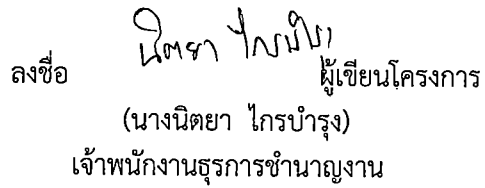 ลงชื่อ นิตยา ไกรบำรุง ผู้เขียนโครงการ
(นางนิตยา ไกรบำรุง)
เจ้าพนักงานธุรการชำนาญงาน